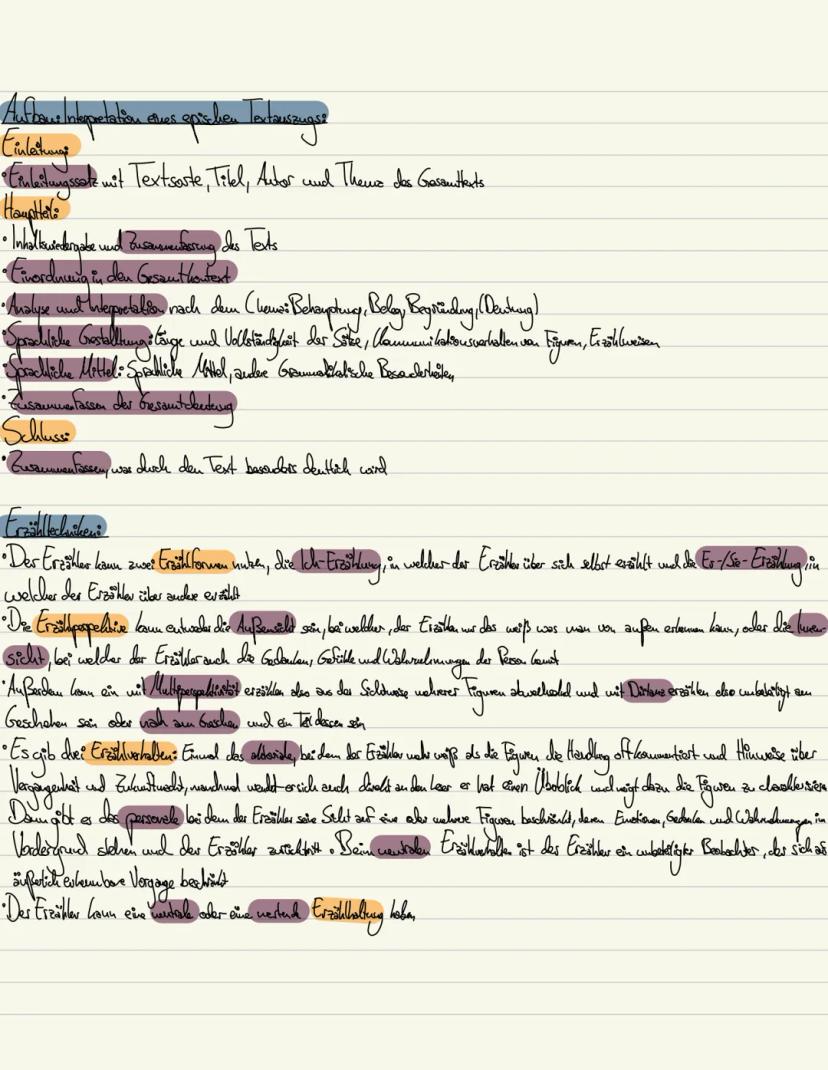 Aufbau: Interpretation eines epischen Textauszugs:
Einleitung:
•Einleitungssatz mit Textsorte, Titel, Autor und Thema des Gesamttexts
Hauptteil:
•Inhaltswiedergabe und Zusammenfassung des Texts
•Einordnung in den Gesamtkontext
•Analyse und Interpretation nach dem Schema: Behauptung, Beleg, Begründung, (Deutung)
•Sprachliche Gestaltung: Länge und Vollständigkeit der Sätze, Kommunikationsverhalten von Figuren, Erzählweisen
•Sprachliche Mittel: Sprachliche Mittel, andere Grammatikalische Besonderheiten
•Zusammenfassen der Gesamtdeutung
Schluss:
•Zusammenfassen, was durch den Text besonders deutlich wird
Erzähltechniken:
•Der Erzähler kann zwei Erzählformen nutzen, die Ich-Erzählung, in welcher der Erzähler über sich selbst erzählt und die Er-/Sie-Erzählung, in
welcher der Erzähler über andere erzählt
•Die Erzählperspektive kann entweder die Außensicht sein, bei welcher, der Erzähler nur das weiß was man von außen erkennen kann, oder die Innen-
sicht, bei welcher der Erzähler auch die Gedanken, Gefühle und Wahrnehmungen der Person kennt
•Außerdem kann ein mit Multiperspektivität erzählen also aus der Sichtweise mehrerer Figuren abwechselnd und mit Distanz erzählen also unbeteiligt am
Geschehen sein oder nah am Geschehen und ein Teil dessen sein
•Es gib drei Erzählverhalten: Einmal das auktoriale, bei dem der Erzähler mehr weiß als die Figuren, die Handlung oft kommentiert und Hinweise über
Vergangenheit und Zukunft macht, manchmal wendet er sich auch direkt an den Leser er hat einen Überblick und neigt dazu die Figuren zu charakterisieren
Dann gibt es das personale bei dem der Erzähler seine Sicht auf eine oder mehrere Figuren beschränkt, deren Emotionen, Gedanken und Wahrnehmungen im
Vordergrund stehen und der Erzähler zurücktritt. Beim neutralen Erzählverhalten ist der Erzähler ein unbeteiligter Beobachter, der sich auf
äußerlich erkennbare Vorgänge beschränkt
•Der Erzähler kann eine neutrale oder eine wertende Erzählhaltung haben